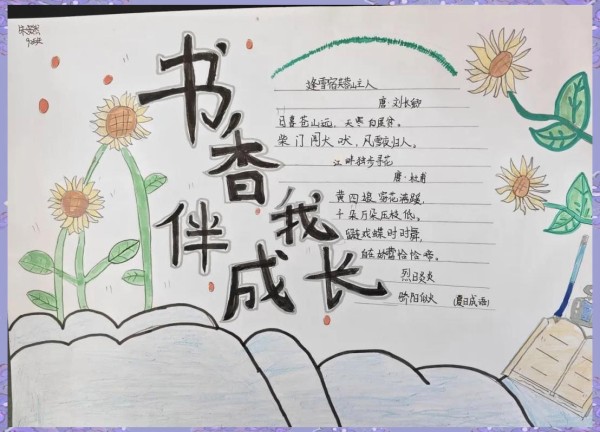 书香
伴我
成长
逢雪宿芙蓉山主人
唐·刘长卿
日暮苍山远，天寒白屋贫。
柴门闻犬吠，风雪夜归人。
江畔独步寻花
唐·杜甫
黄四娘家花满蹊，
千朵万朵压枝低。
留连戏蝶时时舞，
自在娇莺恰恰啼。
烈日炎炎
骄阳似火 （夏日成语）